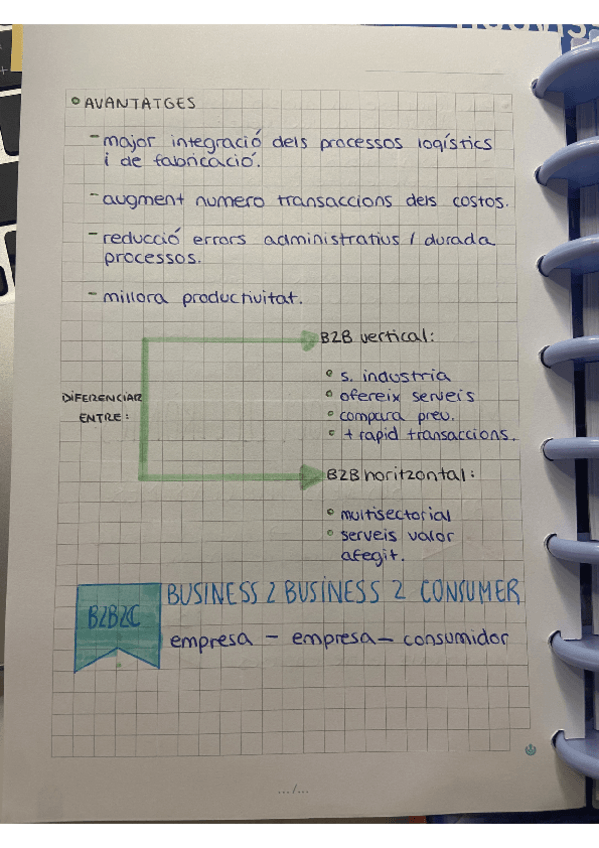 • AVANTATGES
- major integració dels processos logístics
i de fabricació.
- augment numero transaccions dels costos.
- reducció errors administratius / durada
processos.
- millora productivitat.
DIFERENCIAR
ENTRE:
B2B vertical:
• s. industria
• ofereix serveis
• compara preu.
• + rapid transaccions.
B2B horitzontal:
• multisectorial
• serveis valor
afegit.
B2B2C
BUSINESS 2 BUSINESS 2 CONSUMER
empresa - empresa - consumidor
.../...